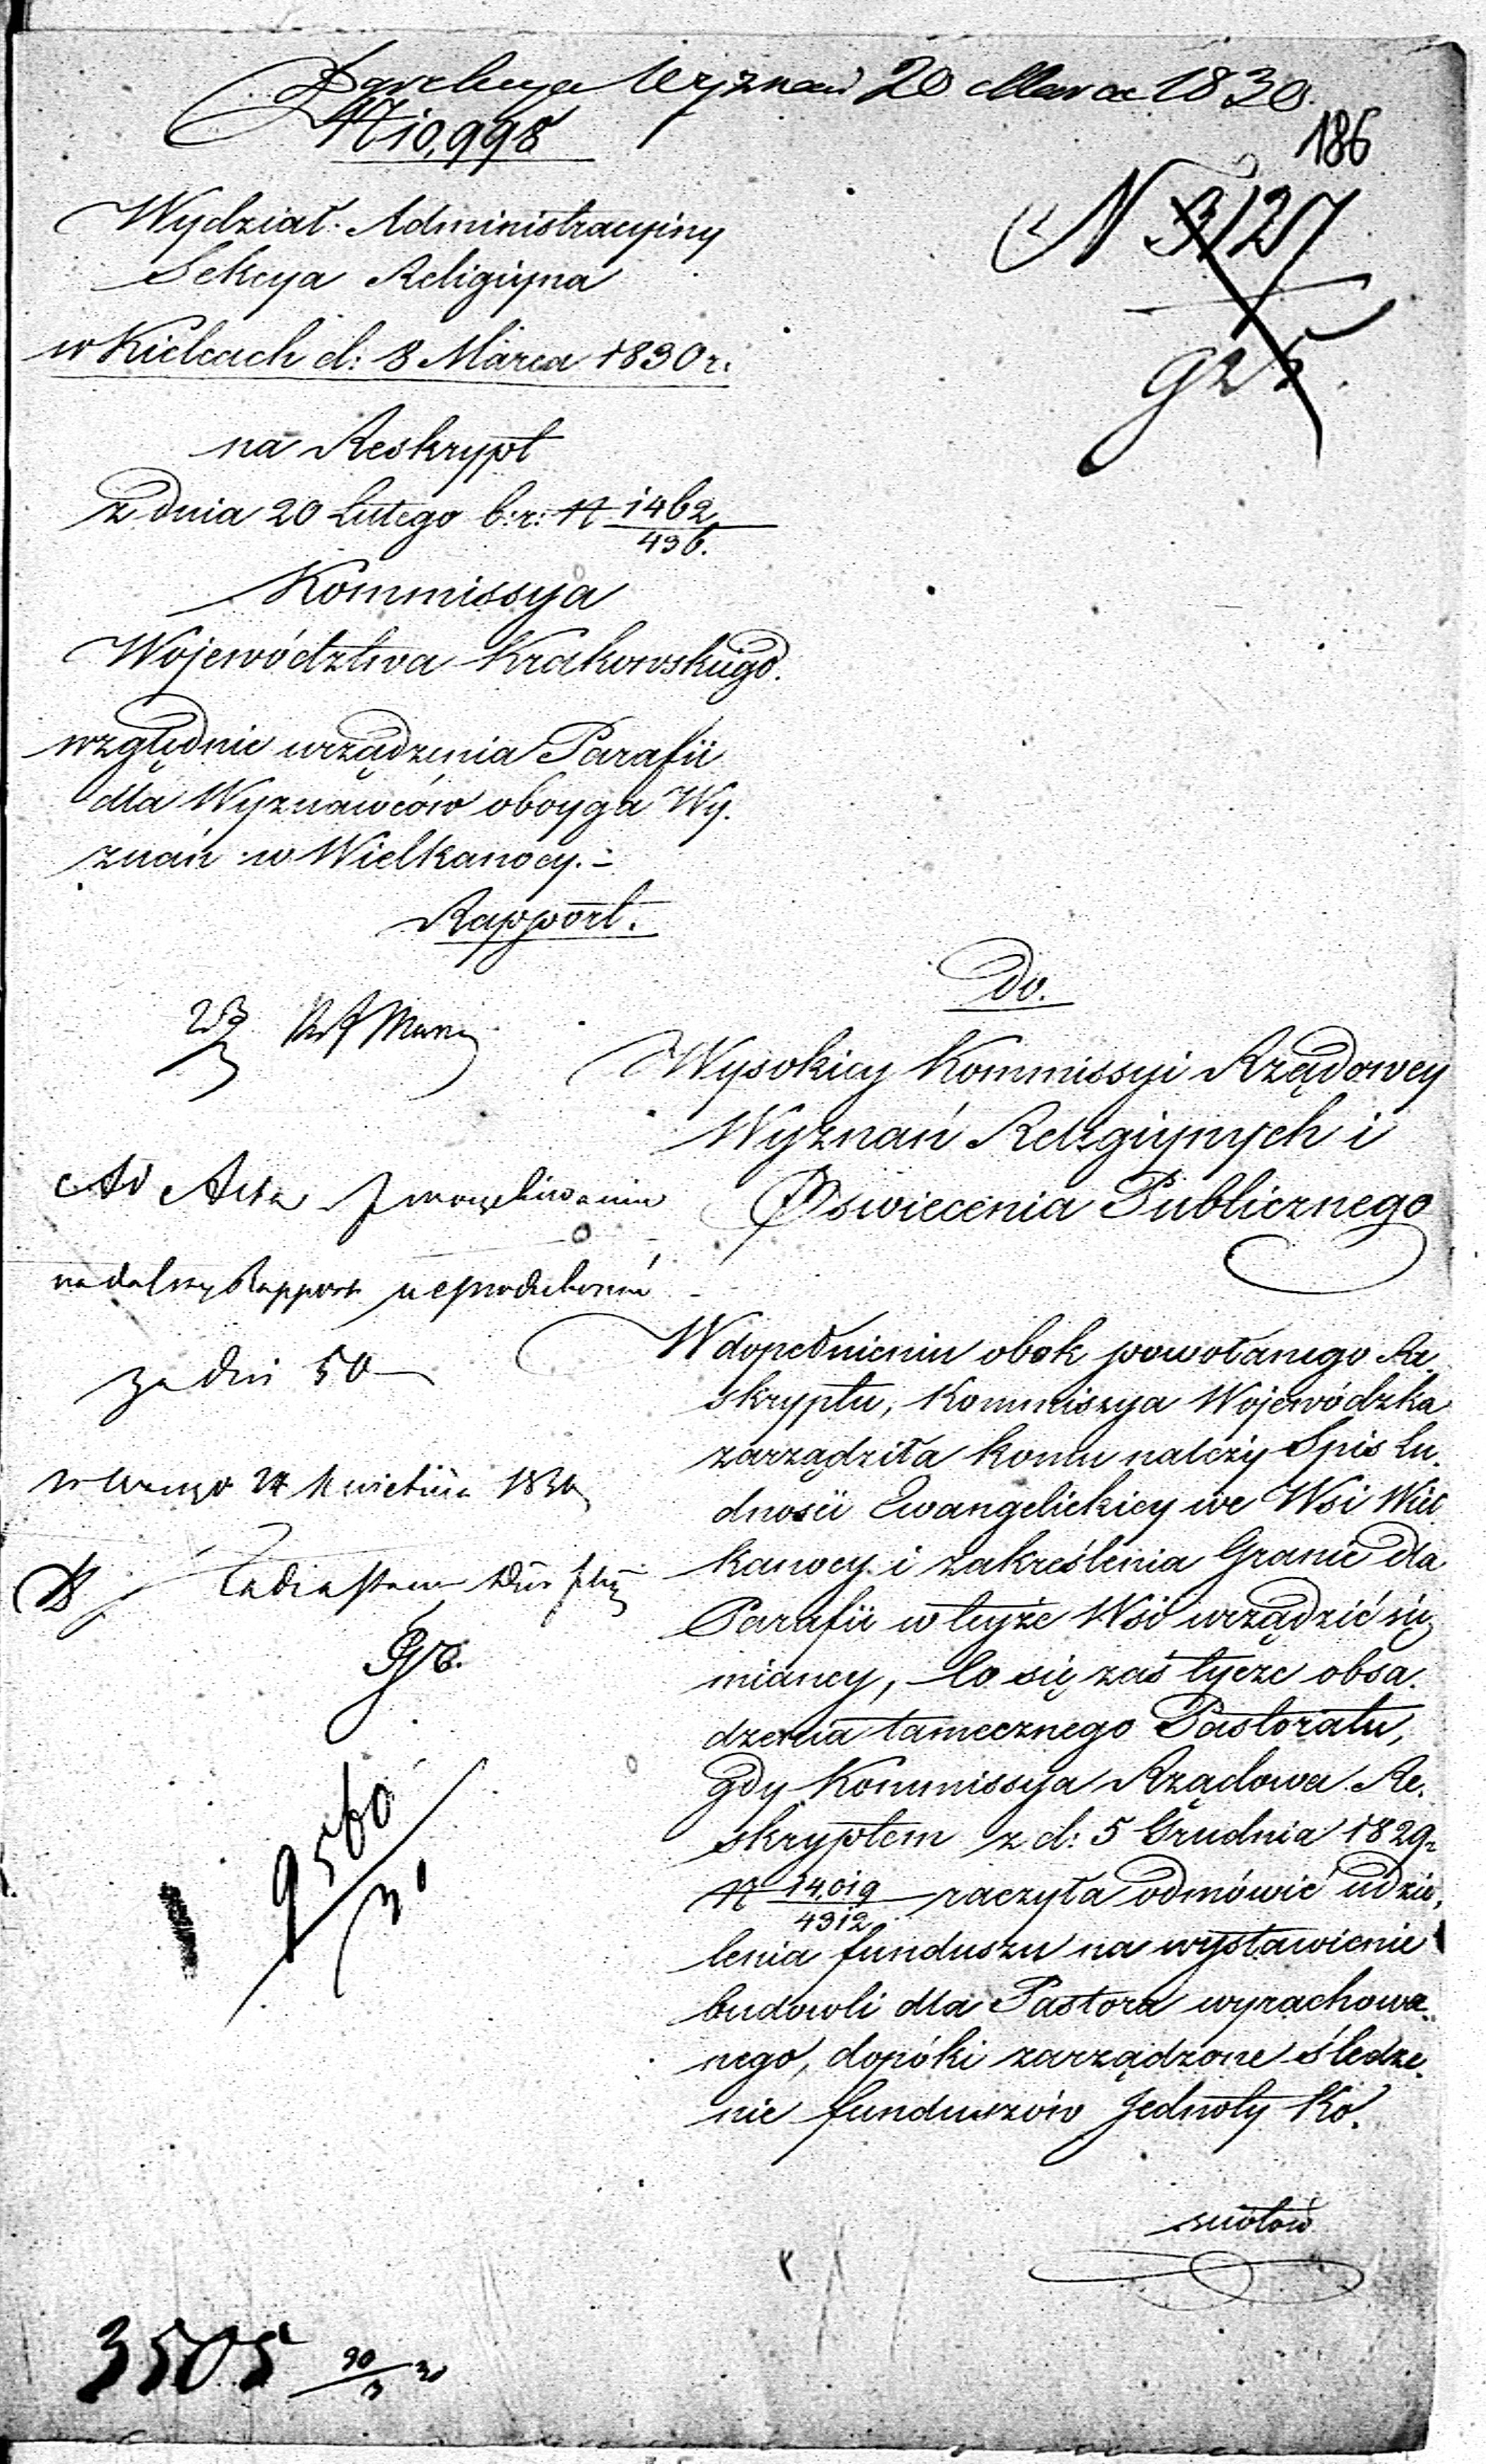 Wyznań 20 Marca 1830.
186
N 10,998
N 3127
925
Wydział Administracyiny
Sekcya Religiyna
w Kielcach d: 8 Marca 1830 r.
na Reskrypt
z dnia 20 Lutego b: r: N 1462/436.
Kommissya
Województwa Krakowskiego.
względnie urządzenia Parafii
dla Wyznawców oboyga Wy.
znań w Wielkanocy. -
Rapport.
Do.
Wysokiey Kommissyi Rządowey
Wyznań Religiynych i
Oswiecenia Publicznego
Ad Acta z
na dalszy Rapport
za dni 50
24 Kwietnia 1830
9560/3
W dopełnieniu obok powołanego Re.
skryptu, Kommiszya Wojewódzka
zarządziła komu należy Spis Lu.
dności Ewangelickiey we Wsi Wiel
kanocy i zakreślenia Granic dla
Parafii w teyże Wsi urządzić się
mianey, Co się zaś tycze obsa.
dzenia tamecznego Pastoratu,
gdy Kommissya Rządowa Re.
skryptem z d: 5 Grudnia 1829 r
N 14,019/4912 raczyła odmówić udzie.
lenia funduszu na wystawienie
budowli dla Pastora wyrachowa.
nego, dopóki zarządzone śledze.
nie funduszów Jednoty Ko.
sciołów
3505 30/3 30